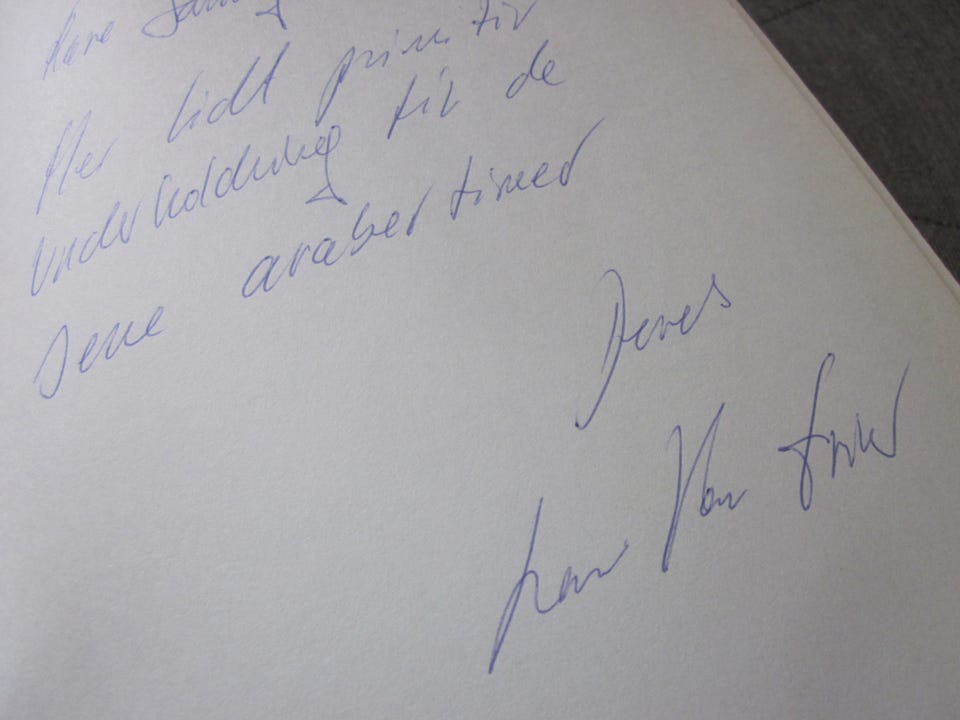 Kære
Her lidt primitiv
underholdning til de
sene arabertimer
Deres